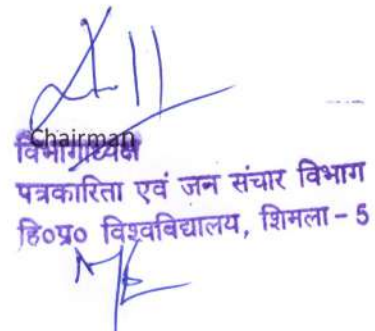 Chairman
विभागाध्यक्ष
पत्रकारिता एवं जन संचार विभाग
हि०प्र० विश्वविद्यालय, शिमला - 5